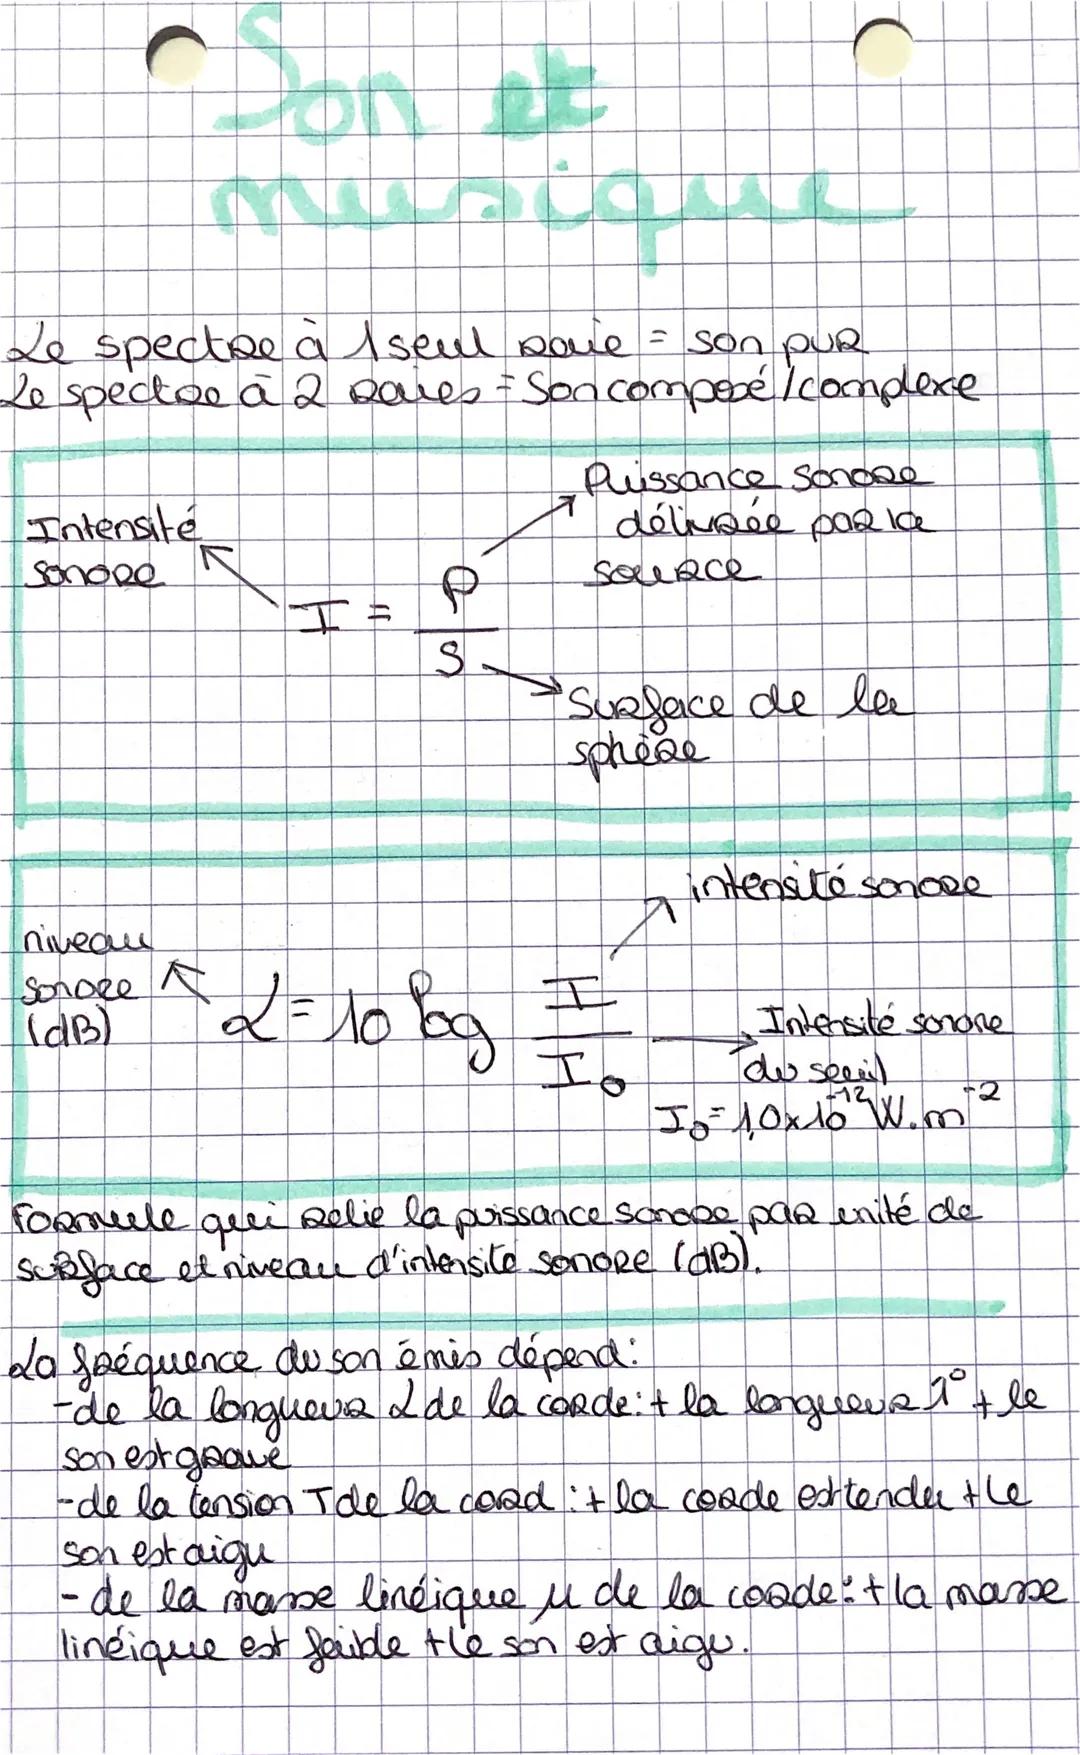 Son et
musique
Le spectre à 1 seul raie = son pur
Le spectre à 2 raies = Son composé/complexe
Puissance sonore
délivrée par la
source
Intensité
sonore
I = P
S
Surface de la
sphère
intensité sonore
niveau
sonore
(dB)
L = 10 log I
I₀
Intensité sonore
du seuil
I₀ = 1,0x10⁻¹² W.m⁻²
Formule qui relie la puissance sonore par unité de
surface et niveau d'intensité sonore (dB).
La fréquence du son émis dépend:
-de la longueur L de la corde: + la longueur ↗ + le
son est grave
-de la tension T de la cord : + la corde est tendu + le
son est aigu
- de la masse linéique μ de la corde: + la masse
linéique est faible + le son est aigu.